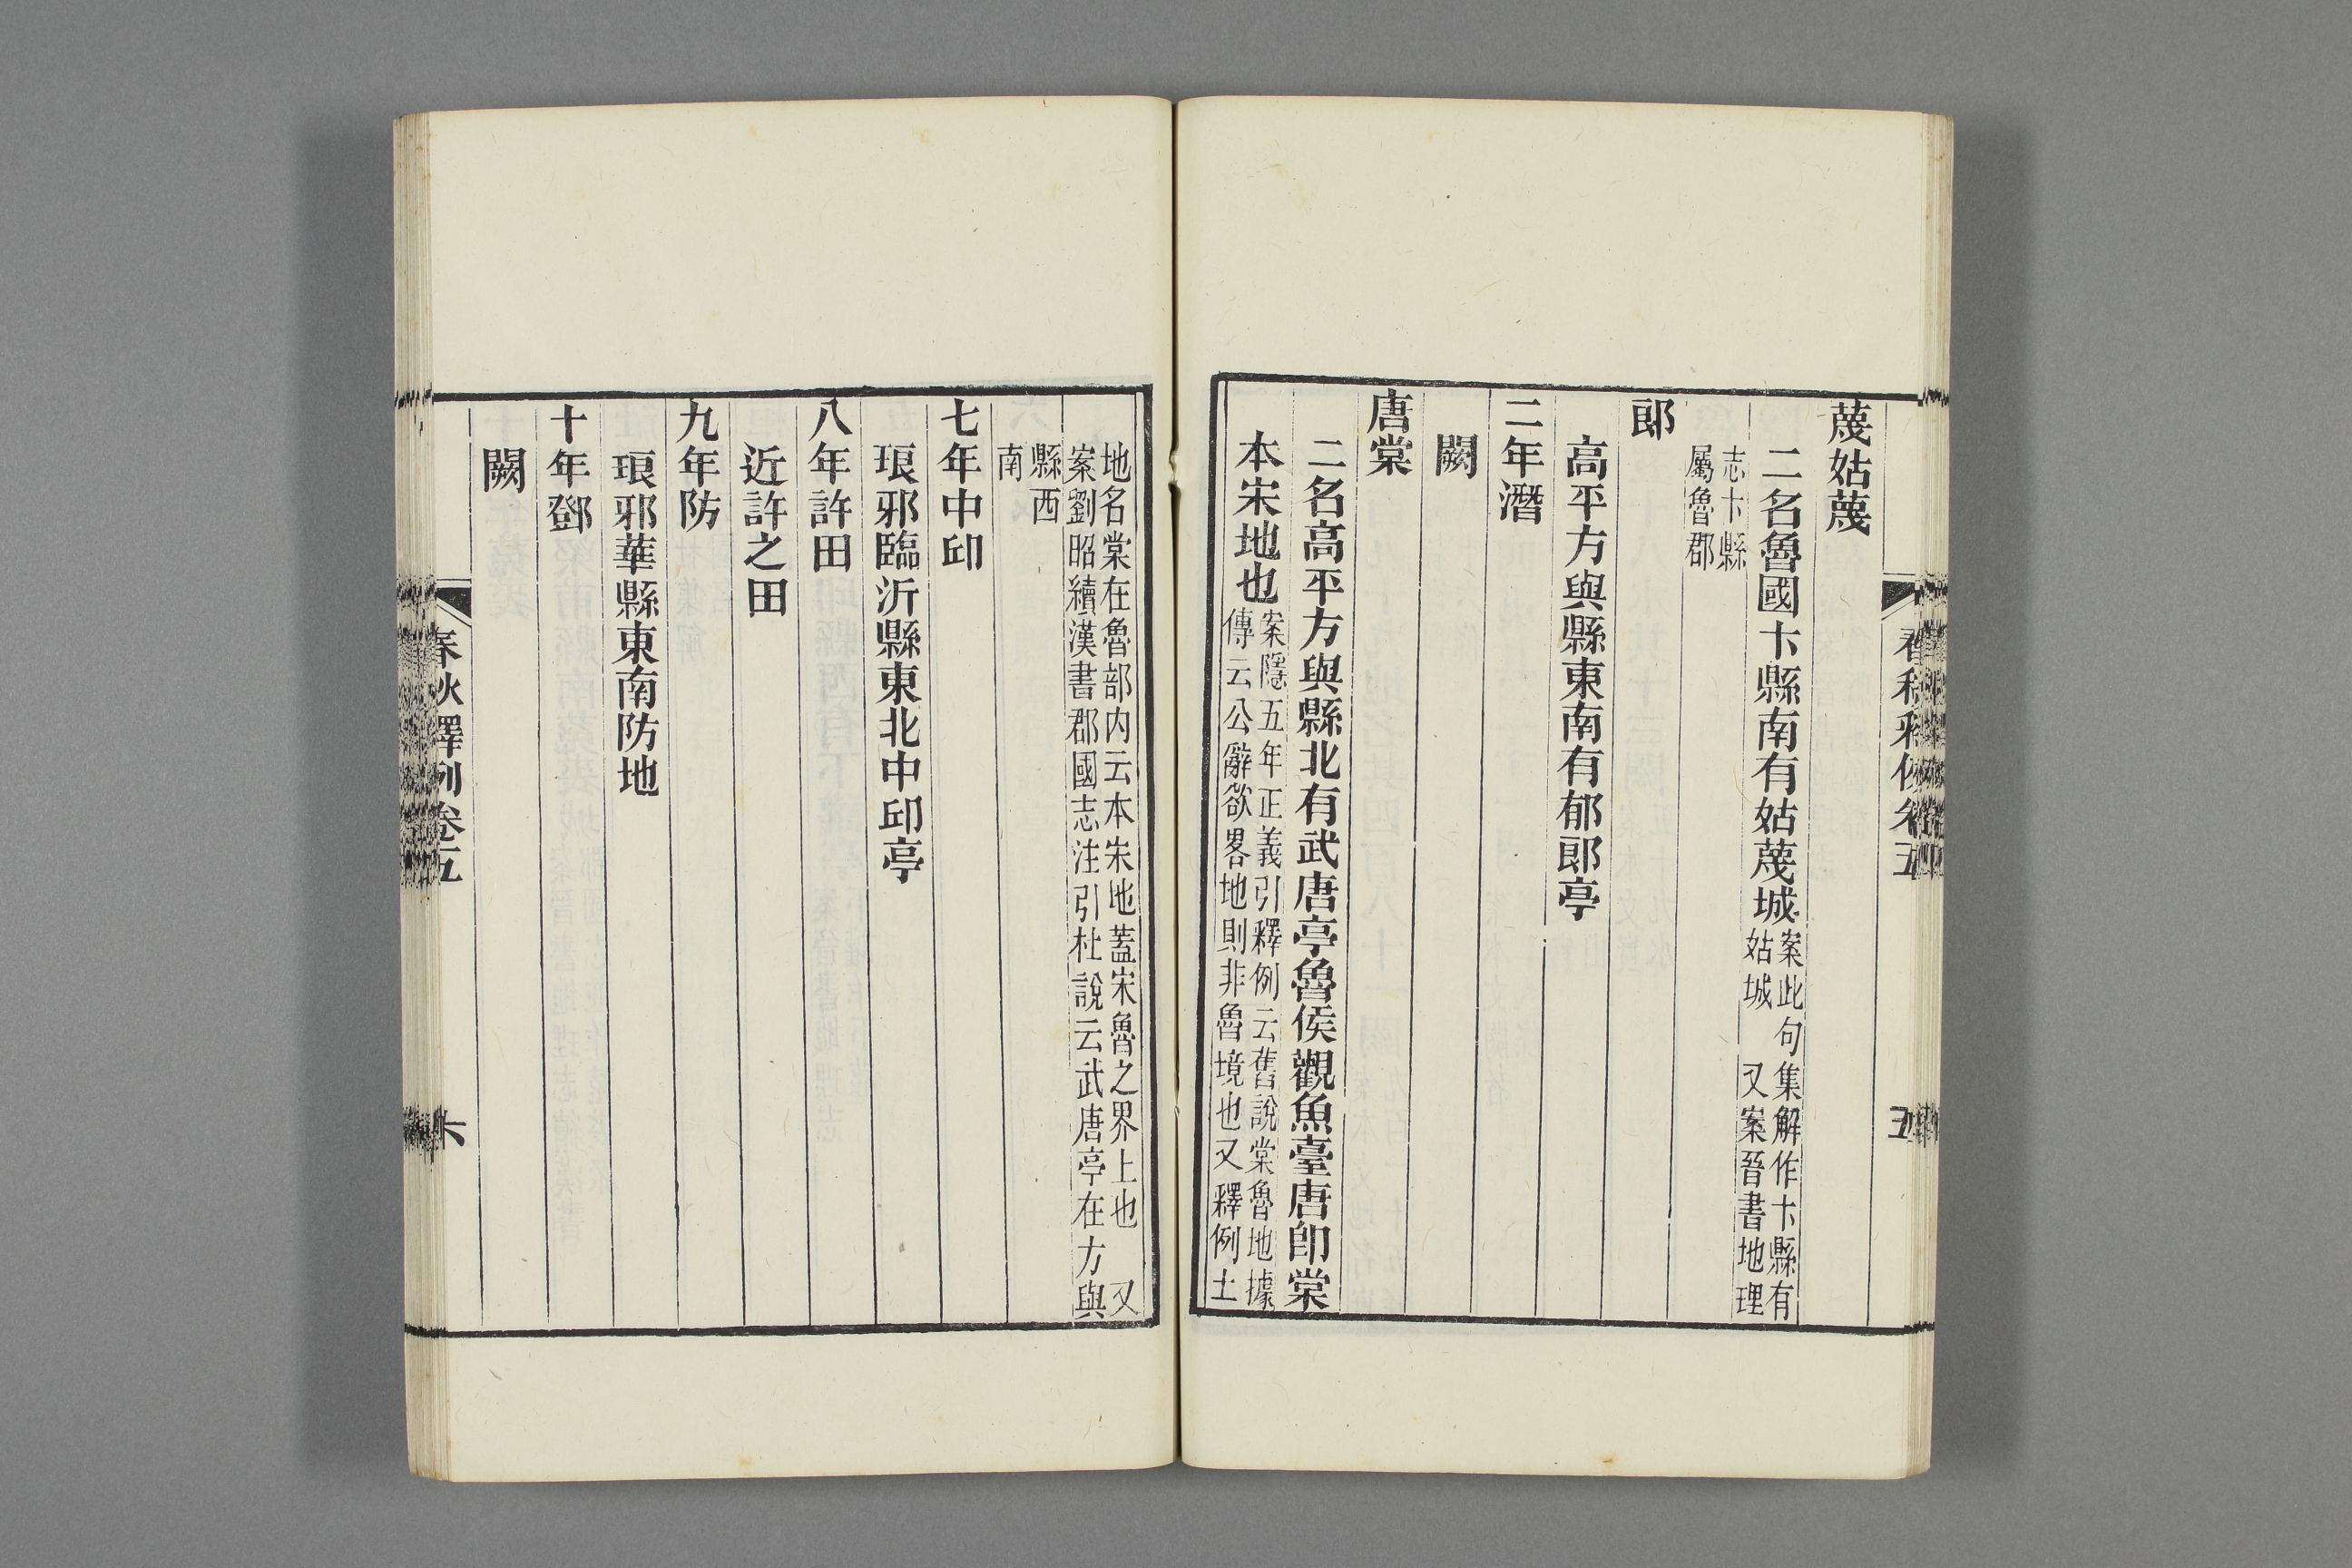 蔑姑蔑
二名魯國卞縣南有姑蔑城案此句集解作卞縣有
姑城　又案晉書地理
志卞縣
屬魯郡
郎
高平方與縣東南有郁郎亭
二年潛
闕
唐棠
二名高平方與縣北有武唐亭魯侯觀魚臺唐卽棠
本宋地也案隱五年正義引釋例云舊說棠魯地據
傳云公辭欲畧地則非魯境也又釋例土
五
地名棠在魯部内云本宋地蓋宋魯之界上也　又
案劉昭續漢書郡國志注引杜說云武唐亭在方與
縣西
南
七年中邱
琅邪臨沂縣東北中邱亭
八年許田
近許之田
九年防
琅邪華縣東南防地
十年鄧
闕
春秋釋例卷五
六